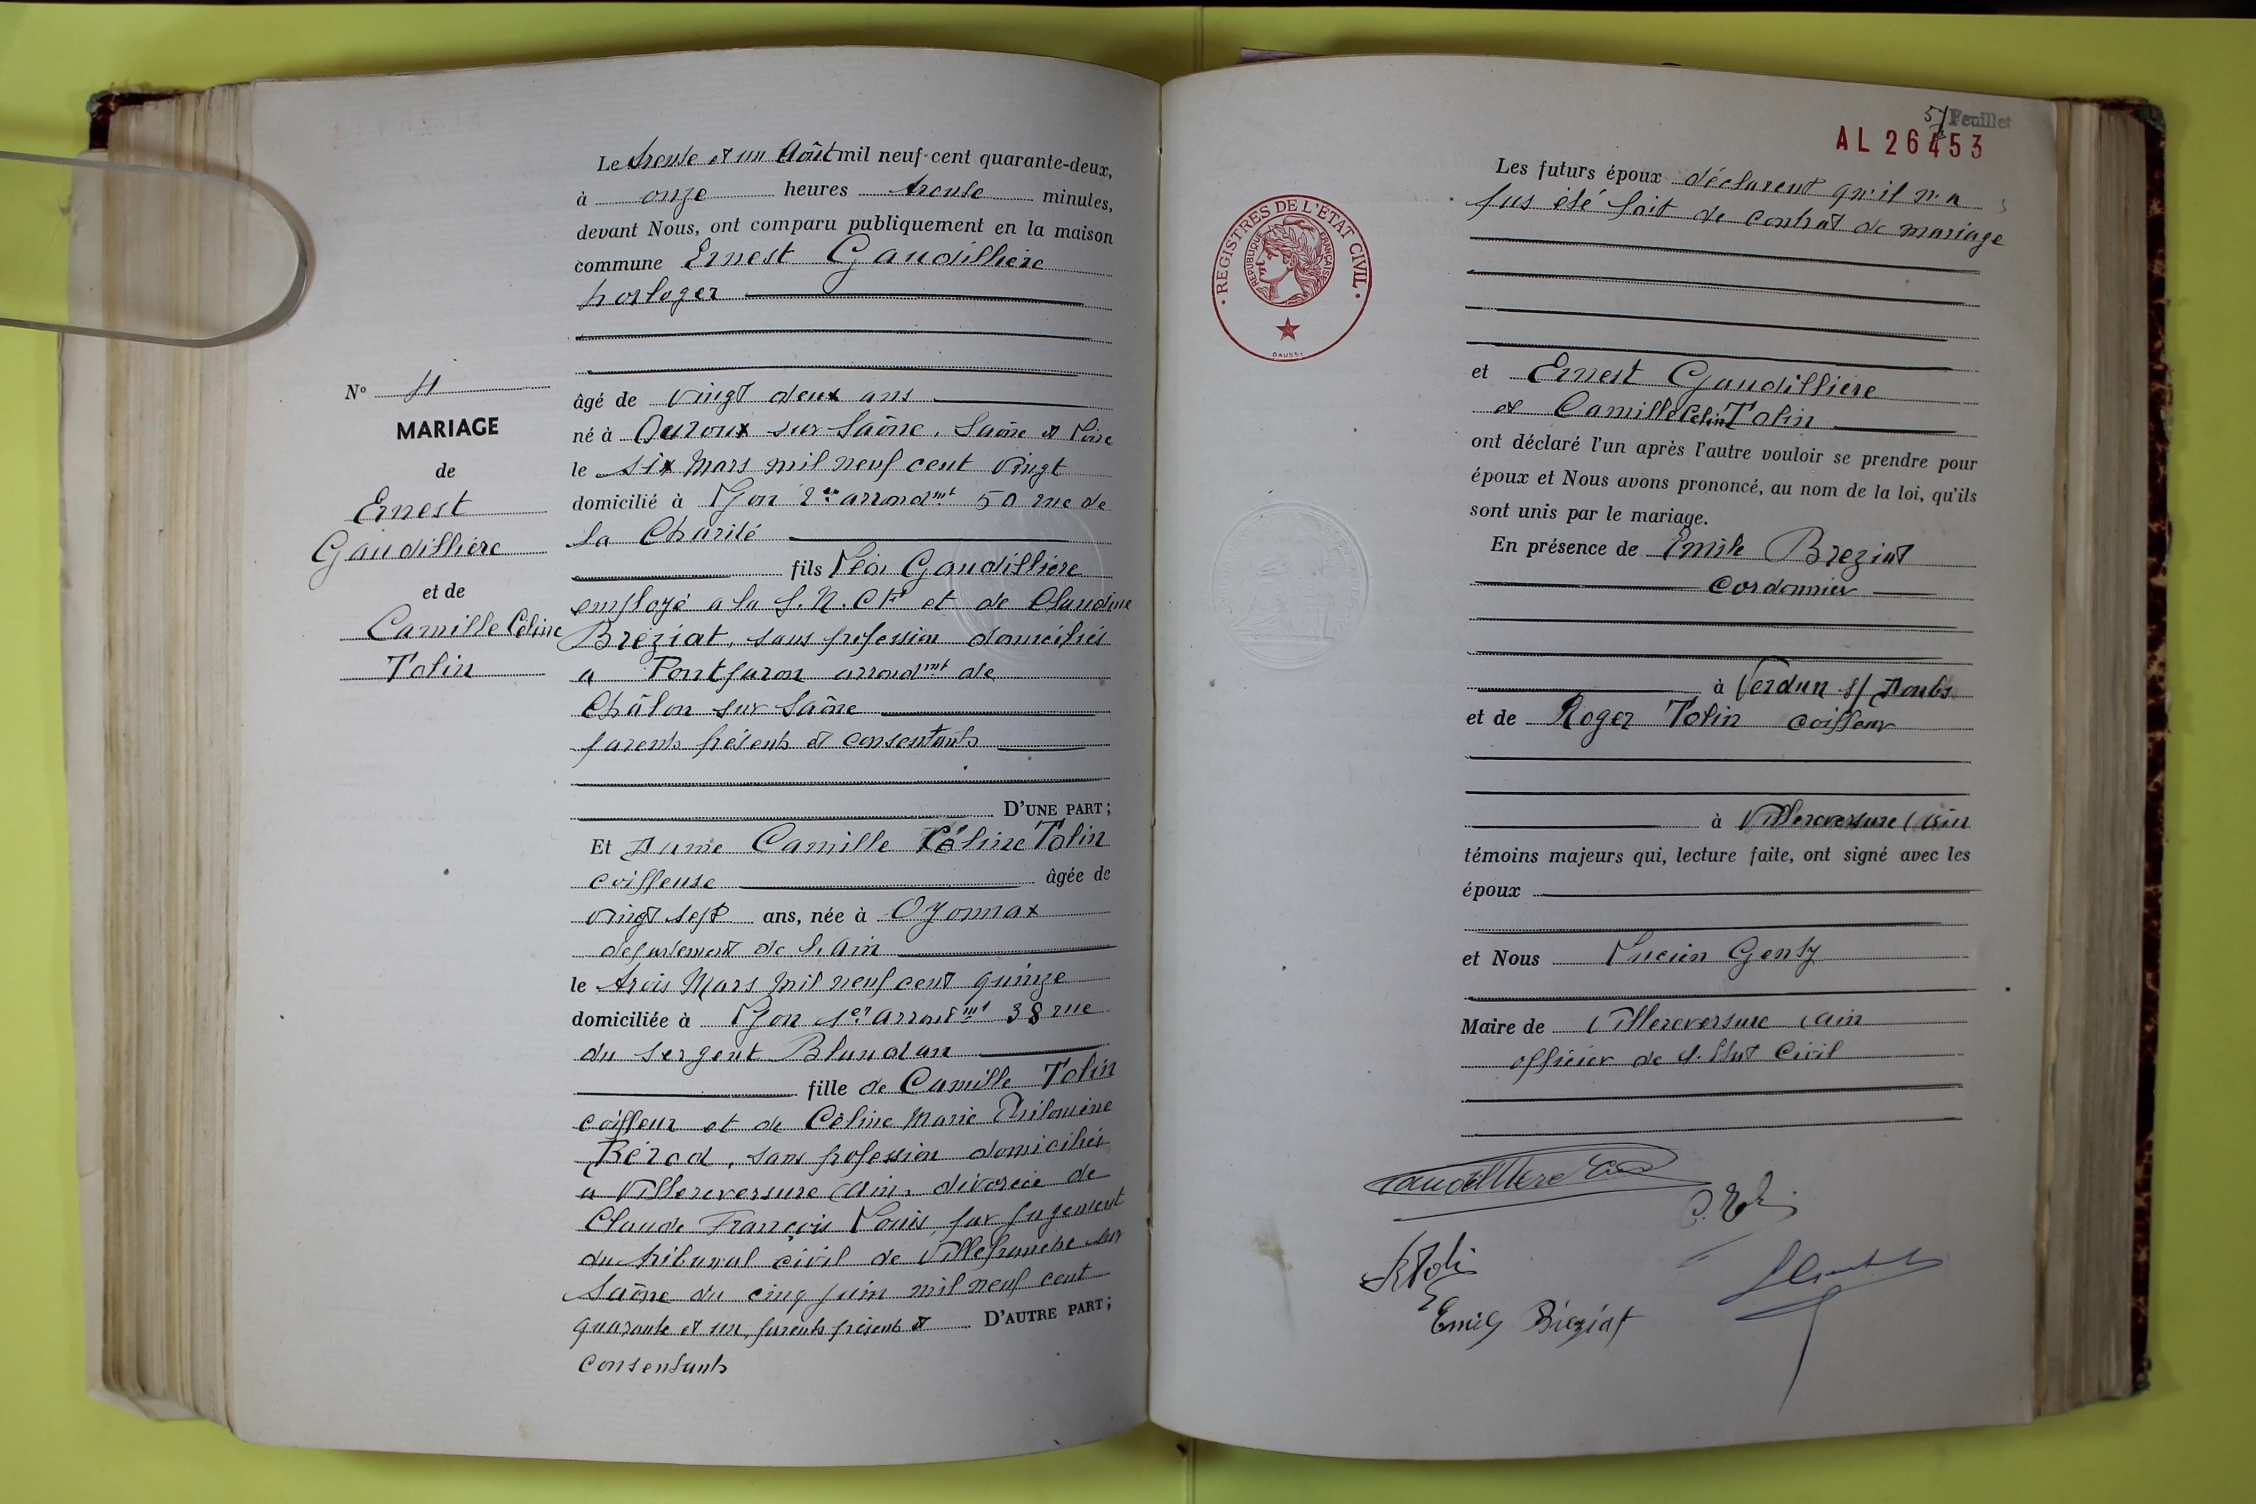 Le trente et un Août mil neuf cent quarante-deux,
à onze heures trente minutes,
devant Nous, ont comparu publiquement en la maison
commune Ernest Gaudillière
horloger
âgé de vingt deux ans
né à Ouroux sur Saône, Saône et Loire
le six Mars mil neuf cent vingt
domicilié à Lyon 2e arrondmt 50 rue de
la Charité
fils Léon Gaudillière
employé a la S.N.C.F. et de Claudine
Bréziat, sans profession domiciliés
a Pontjaron arrondmt de
Châlon sur Saône
parents présents et consentants
D'UNE PART;
Et Dame Camille Céline Tolin
coiffeuse âgée de
vingt sept ans, née à Oyonnax
departement de l'Ain
le trois Mars mil neuf cent quinze
domiciliée à Lyon 1er arrondmt 38 rue
du Sergent Blandan
fille de Camille Tolin
coiffeur et de Céline Marie Philomène
Bérod, sans profession domiciliés
a Villereversure Ain, divorcée de
Claude François Louis, par jugement
du tribunal civil de Villefranche sur
Saône du cinq juin mil neuf cent
quarante et un, parents présents et D'AUTRE PART;
consentants
No 4
MARIAGE
de
Ernest
Gaudillière
et de
Camille Céline
Tolin
57 Feuillet
AL 26453
REGISTRES DE L'ETAT CIVIL
REPUBLIQUE FRANÇAISE
Les futurs époux déclarent qu'il n'a
pas été fait de contrat de mariage
et Ernest Gaudillière
et Camille Celine Tolin
ont déclaré l'un après l'autre vouloir se prendre pour
époux et Nous avons prononcé, au nom de la loi, qu'ils
sont unis par le mariage.
En présence de Emile Breziat
cordonnier
à Verdun s/ Doubs
et de Roger Tolin coiffeur
à Villereversure Ain
témoins majeurs qui, lecture faite, ont signé avec les
époux
et Nous Lucien Genty
Maire de Villereversure Ain
officier de l'Etat Civil
Gaudillière
C. Tolin
R Tolin
Emile Bréziat